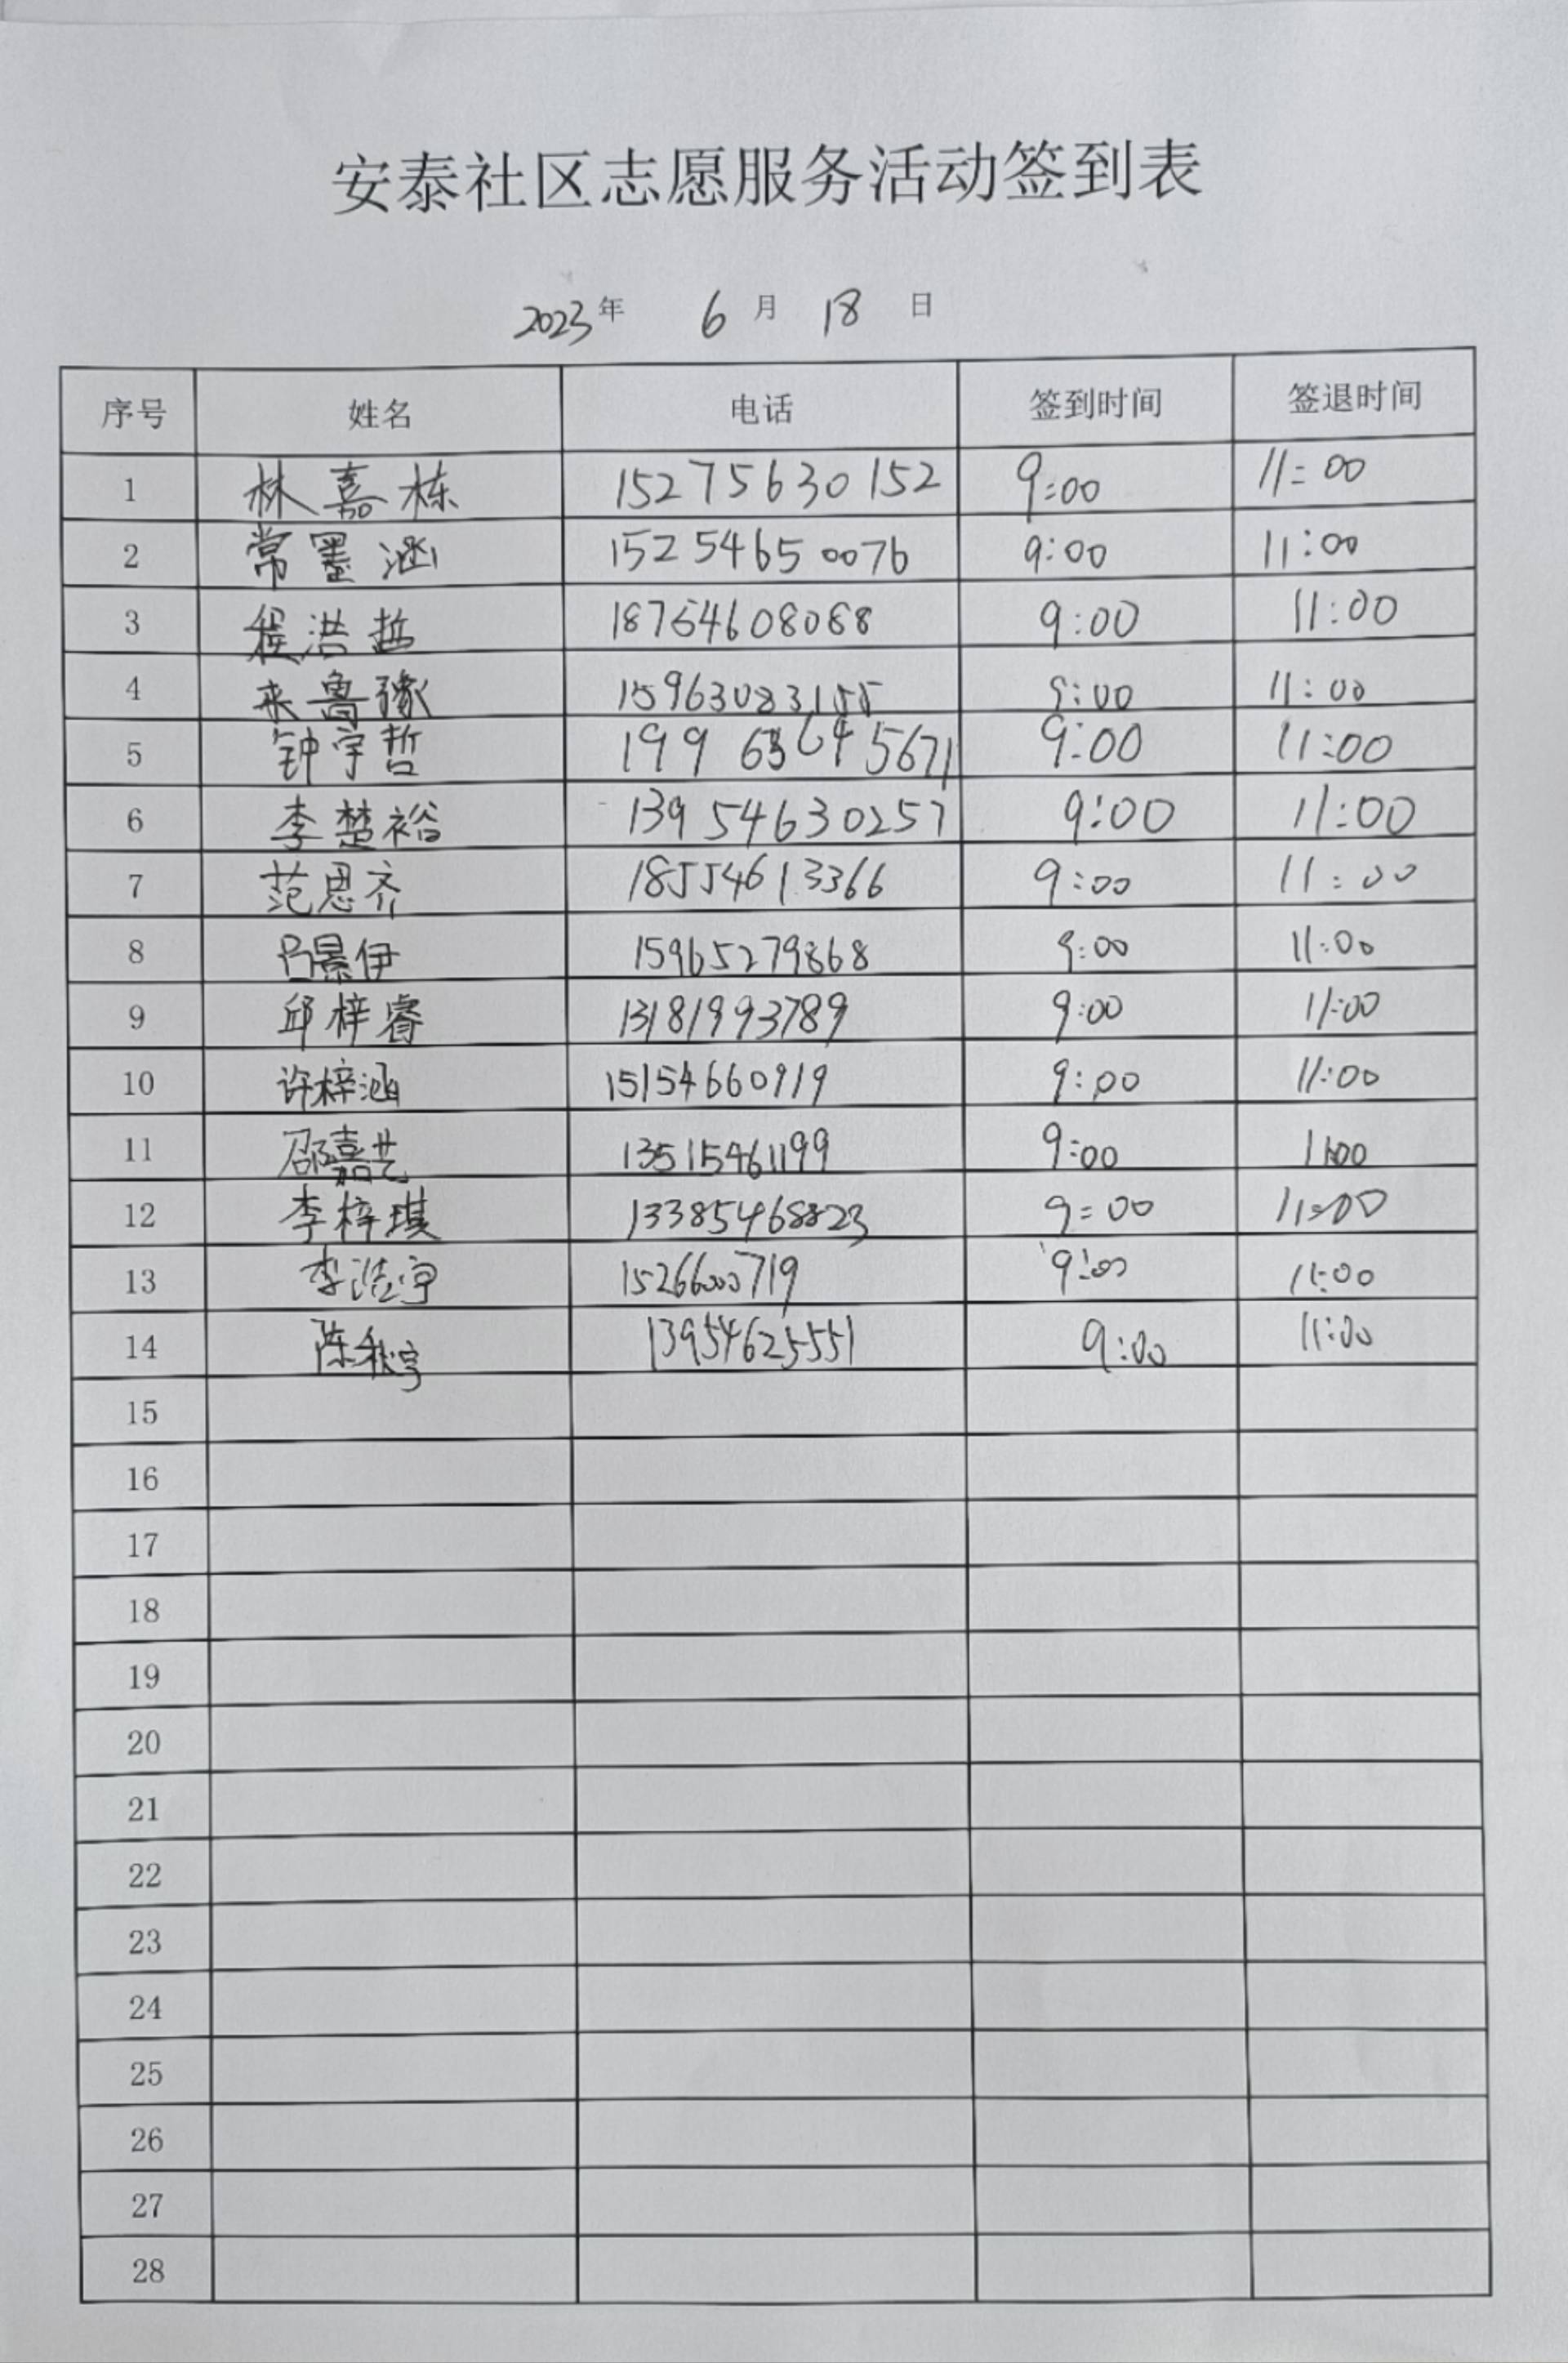 安泰社区志愿服务活动签到表
2023年 6月 18日
序号 姓名 电话 签到时间 签退时间
1 林嘉栋 15275630152 9:00 11:00
2 常墨涵 15254650076 9:00 11:00
3 程洪哲 18754608088 9:00 11:00
4 来鲁豫 15963083155 9:00 11:00
5 钟宇哲 19963645671 9:00 11:00
6 李楚裕 13954630257 9:00 11:00
7 范恩齐 18554613366 9:00 11:00
8 吕景伊 15965279868 9:00 11:00
9 邱梓睿 13181993789 9:00 11:00
10 许梓涵 15154660919 9:00 11:00
11 邵嘉艺 13515461199 9:00 11:00
12 李梓琪 13385468823 9:00 11:00
13 李浩宇 15266000719 9:00 11:00
14 陈秋宇 13954625551 9:00 11:00
15
16
17
18
19
20
21
22
23
24
25
26
27
28